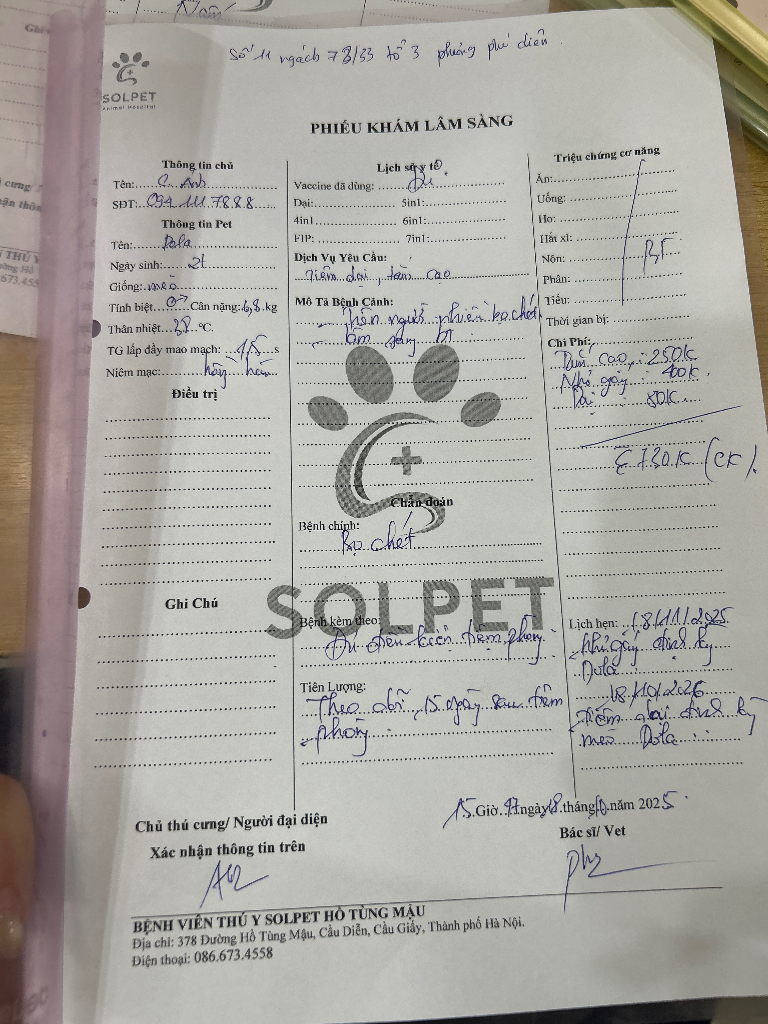 Số 11 ngách 78/33 tổ 3 phường phú diễn
SOLPET
Animal Hospital
PHIẾU KHÁM LÂM SÀNG
Thông tin chủ
Tên: C. Anh
SĐT: 094 111 7888
Thông tin Pet
Tên: Dola
Ngày sinh: 2t
Giống: mèo
Tính biệt ♂ Cân nặng: 6,8 kg
Thân nhiệt: 38 °C.
TG lấp đầy mao mạch: 1,5 s
Niêm mạc: hồng hào
Điều trị
Ghi Chú
Lịch sử y tế
Vaccine đã dùng: Đủ
Dại: 5in1:
4in1 6in1:
FIP: 7in1:
Dịch Vụ Yêu Cầu:
Tiêm dại, tắm cạo
Mô Tả Bệnh Cảnh:
Trên người nhiều bọ chét
lâm sàng bt
Chẩn đoán
Bệnh chính:
Bọ chét
SOLPET
Bệnh kèm theo:
Đủ điều kiện tiêm phòng
Tiên Lượng:
Theo dõi 15 ngày sau tiêm
phòng
Triệu chứng cơ năng
Ăn:
Uống:
Ho:
Hắt xì:
Nôn: BT
Phân:
Tiểu:
Thời gian bị:
Chi Phí:
cạo : 250K
Nhỏ gáy : 400K
Dại : 80K
Σ 730K (CK).
Lịch hẹn: 18/11/2025
nhỏ gáy định kỳ
Dola
18/10/2026
Tiêm dại định kỳ
mèo Dola
15 Giờ 47 ngày 18 tháng 10 năm 2025
Chủ thú cưng/ Người đại diện
Xác nhận thông tin trên
Bác sĩ/ Vet
BỆNH VIỆN THÚ Y SOLPET HỒ TÙNG MẬU
Địa chỉ: 378 Đường Hồ Tùng Mậu, Cầu Diễn, Cầu Giấy, Thành phố Hà Nội.
Điện thoại: 086.673.4558